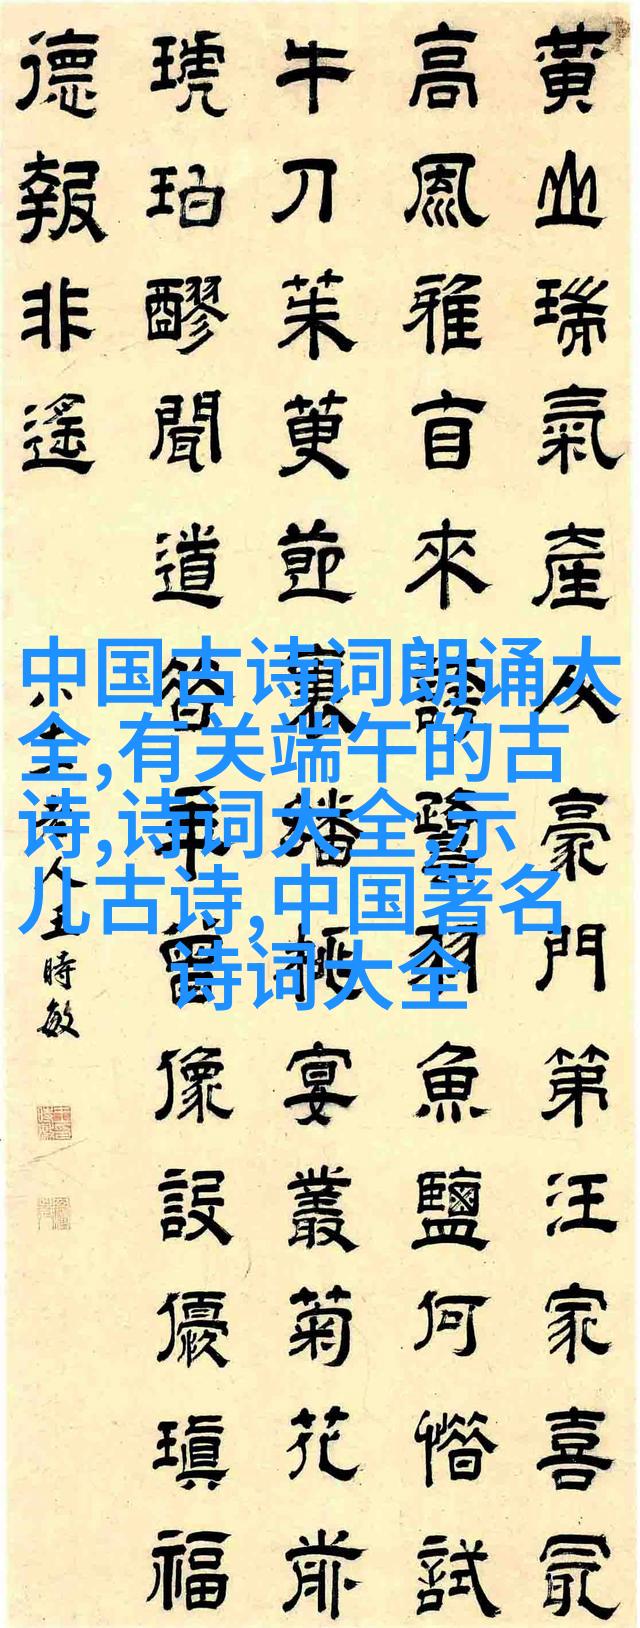 黃山瑞氣產
豪門第汪家喜
高風雅盲來
魚鹽何惜試
牛刀茱萸節裏
宴叢菊花前
琥珀醪聞道
曾像設優瑱福
德報非遙
時敏
中国古诗词朗诵大
全,有关端午的古
诗,诗词大全,示
儿古诗,中国著名
诗词大全